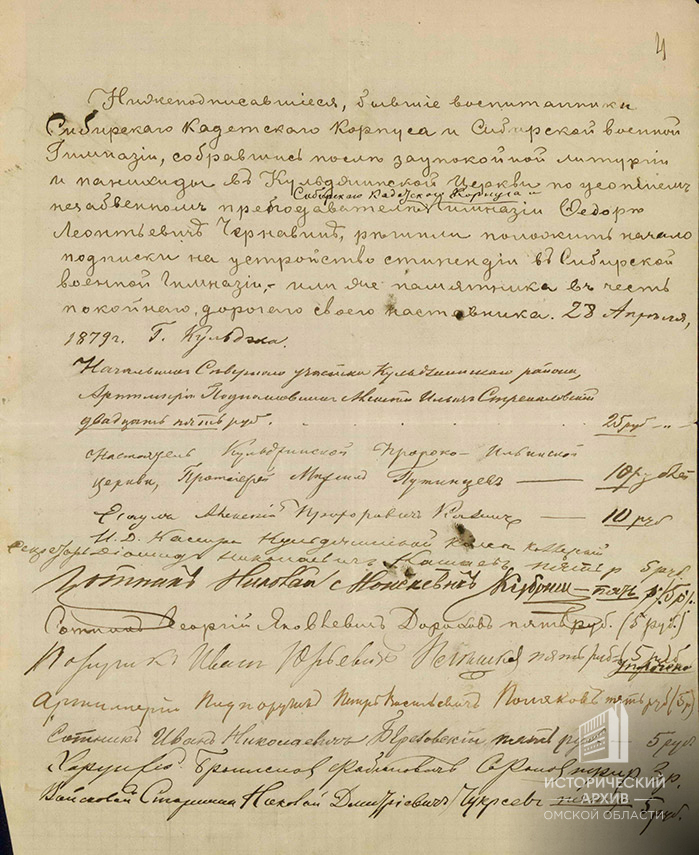 4
Нижеподписавшіеся, бывшіе воспитанники
Сибирскаго Кадетскаго Корпуса и Сибирской военной
Гимназіи, собравшись послѣ заупокойной литургіи
и панихиды въ Кульджинской Церкви по усопшемъ
Сибирскаго Кадетскаго Корпуса и
незабвенномъ преподавателѣ Гимназіи Ѳедорѣ
Леонтьевичѣ Чернавинѣ, рѣшили положить начало
подписки на устройство стипендіи въ Сибирской
военной Гимназіи, - или же памятника въ честь
покойнаго, дорогаго своего наставника. 28 Апрѣля,
1879 г. Г. Кульджа.
Начальникъ Сѣвернаго участка Кульджинскаго района,
Артиллеріи Подполковникъ Ильичъ
двадцать пять руб. 25 руб
Настоятель Кульджинской Пророко-Ильинской
церкви, Протоіерей Михаилъ Путинцевъ — 10 рублей
Есаулъ Алексѣй Прохоровичъ — 10 руб
И. Д. Касира Кульджинской
Секретарь Николаевичъ пять р 5 руб.
Сотникъ Николай Моисеевичъ — пять р. (5 р.)
Сотникъ Георгій Яковлевичъ пять руб. (5 руб.)
Поручикъ Иванъ Юрьевичъ пять руб. 5 руб
Артиллеріи Подпоручикъ Петръ Васильевичъ Поляковъ пять руб (5 р)
Сотникъ Иванъ Николаевичъ Березовскій пять р — 5 руб
Хорунжій 3 р.
Войсковой Старшина Николай Дмитріевичъ Чукреевъ 5 руб.
ИСТОРИЧЕСКИЙ
АРХИВ
ОМСКОЙ ОБЛАСТИ